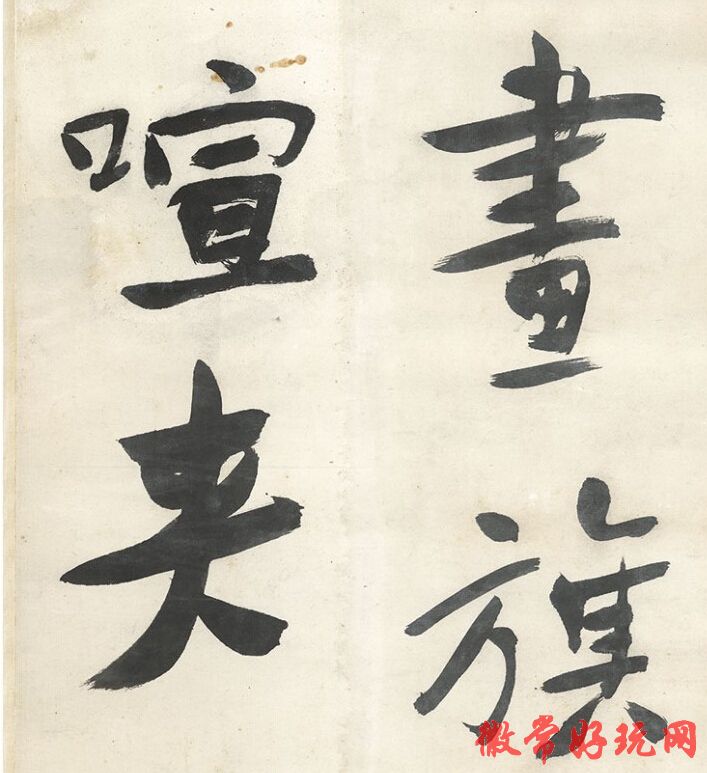 畫旗
喧来
微常好玩网